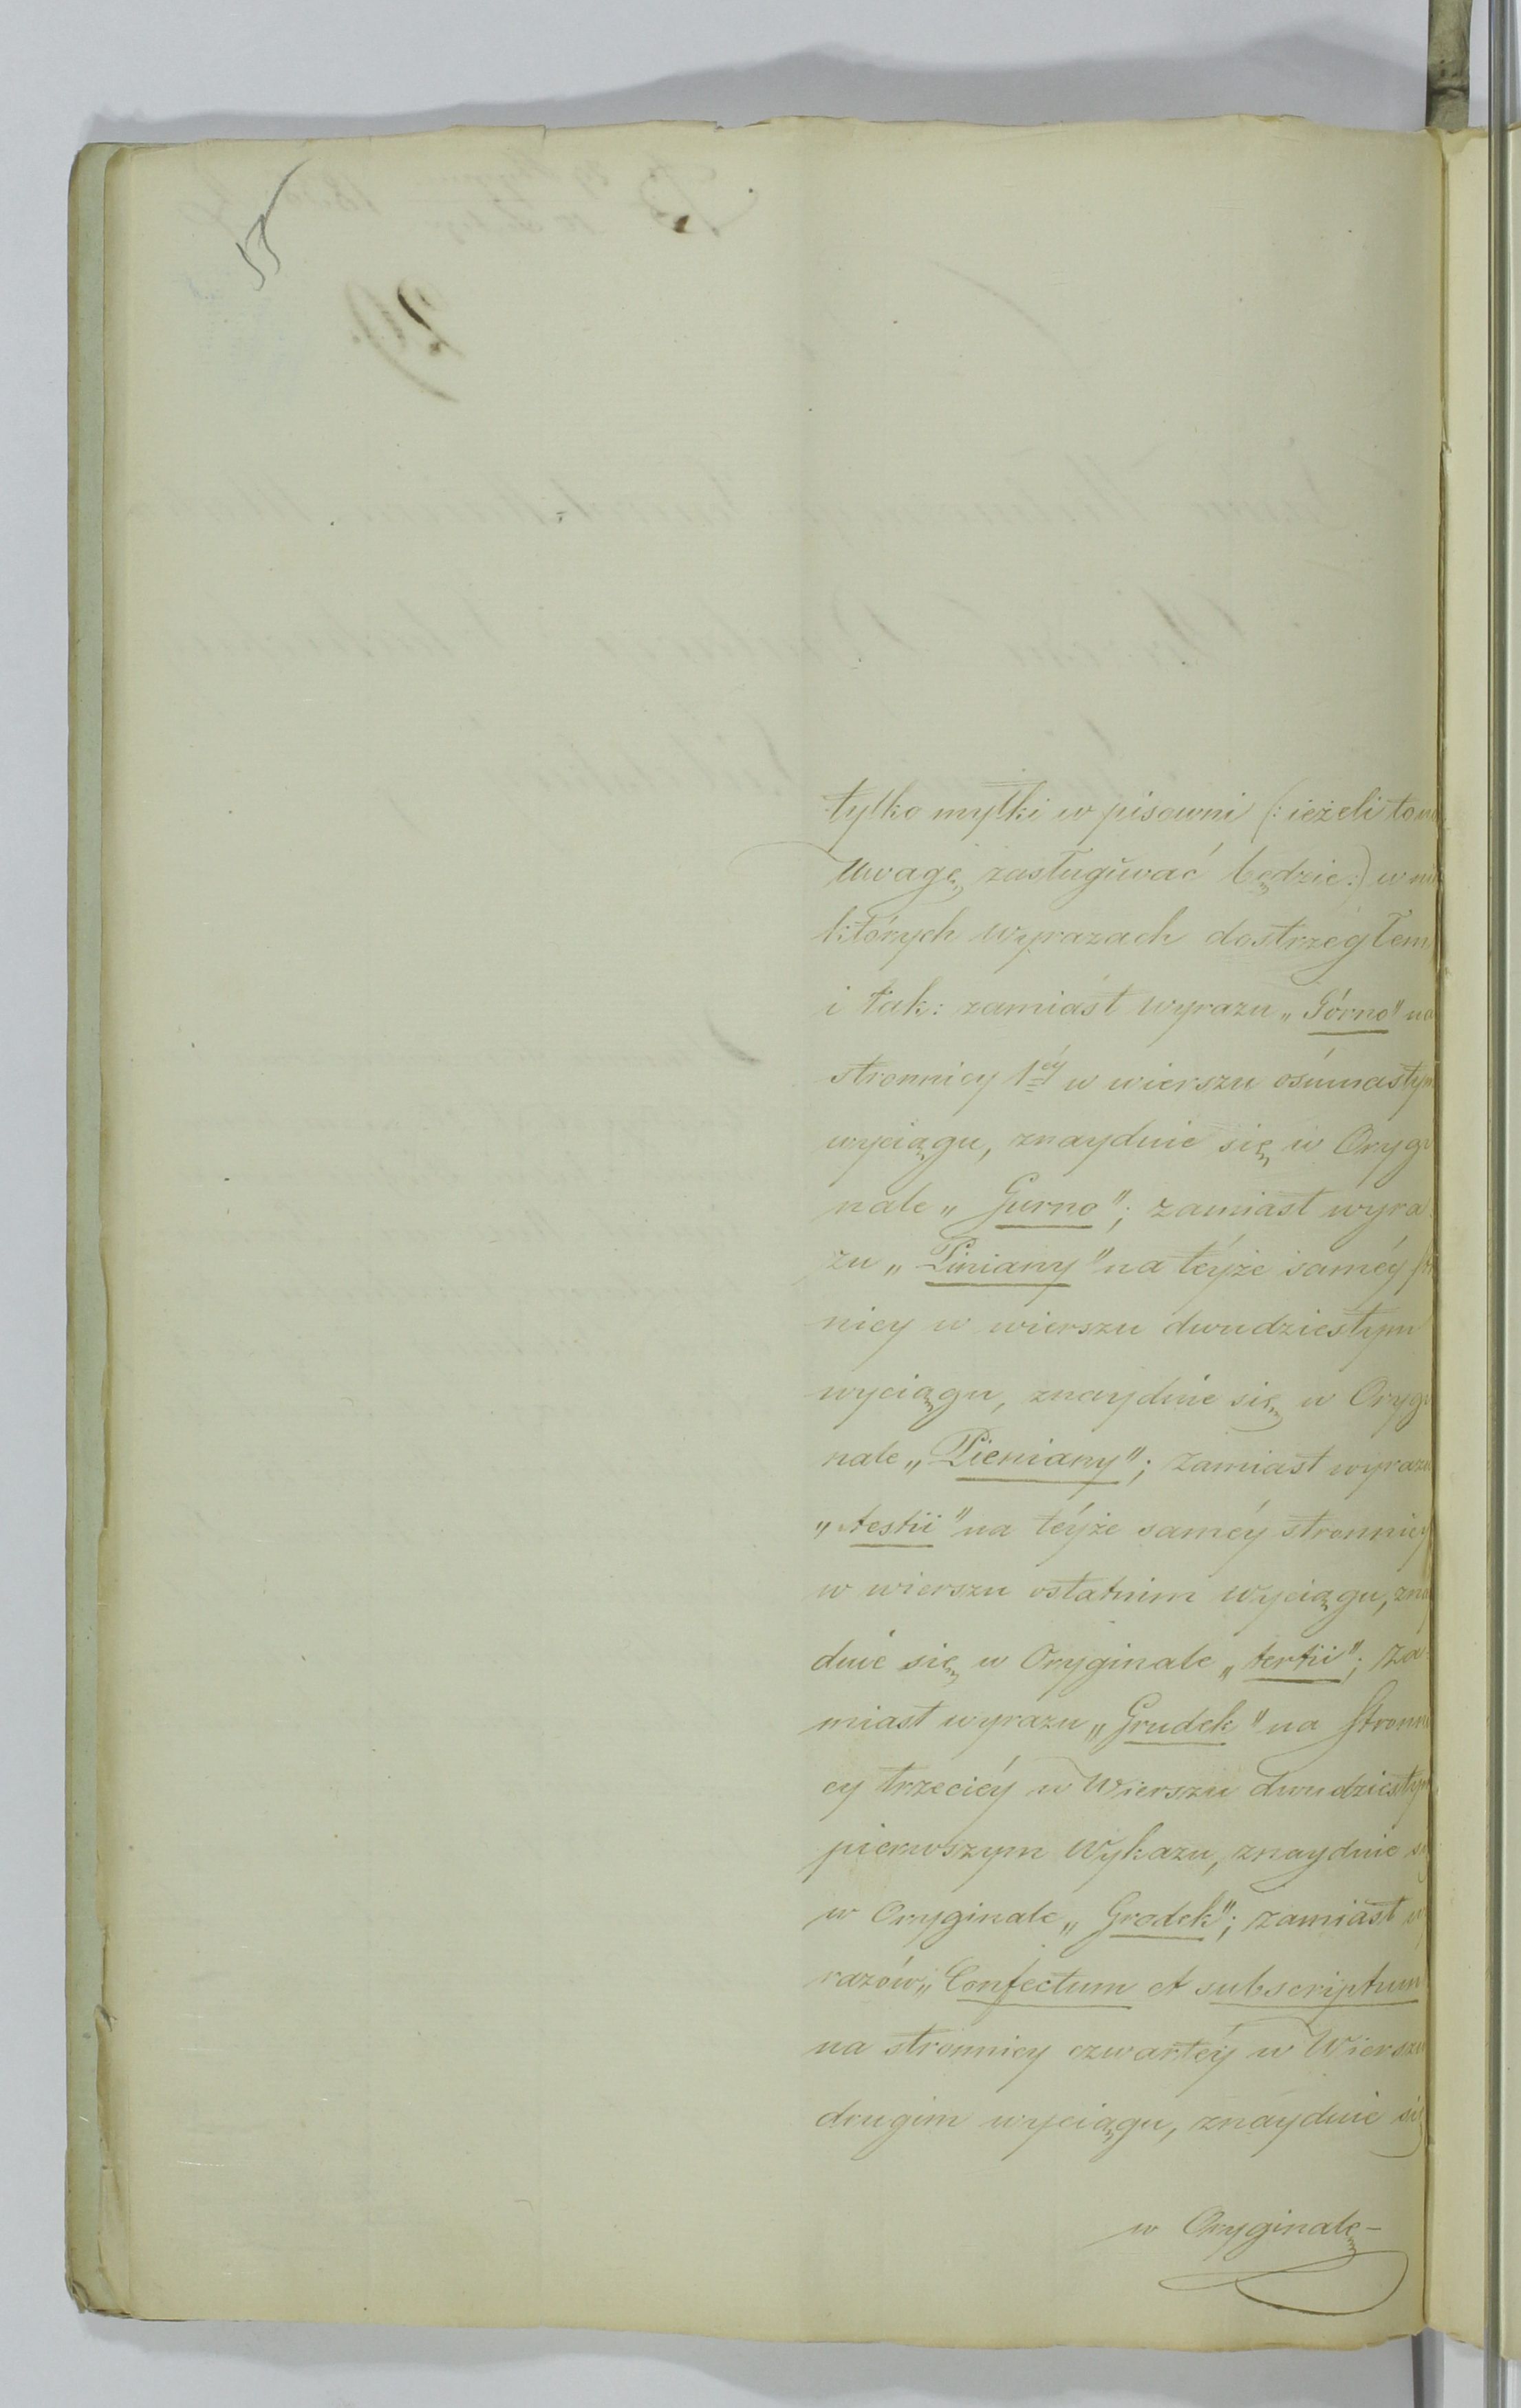 tylko myłki w pisowni (: ieżeli to na
Uwagę zasługiwać będzie :) w nie
których wyrazach dostrzegłem
i tak: zamiast wyrazu „Górno" na
stronnicy 1éy w wierszu ośmnastym
wyciągu, znayduie się w Orygi
nale „Gurno"; zamiast wyra-
zu „Piniany" na téyże saméy
nicy w wierszu dwudziestym
wyciągu, znayduie się w Orygi
nale „Pieniany"; zamiast wyrazu
„testii" na téyże saméy stronnicy
w wierszu ostatnim wyciągu, znay
duie się w Oryginale „tertii"; za-
miast wyrazu „Grudek" na stronni
cy trzeciéy w Wierszu dwudziestym
pierwszym Wykazu, znayduie się
w Oryginale „Grodek"; zamiast wy
razów „Confectum et subscriptum
na stronnicy czwartéy w Wierszu
drugim wyciągu, znayduie się
w Oryginale-